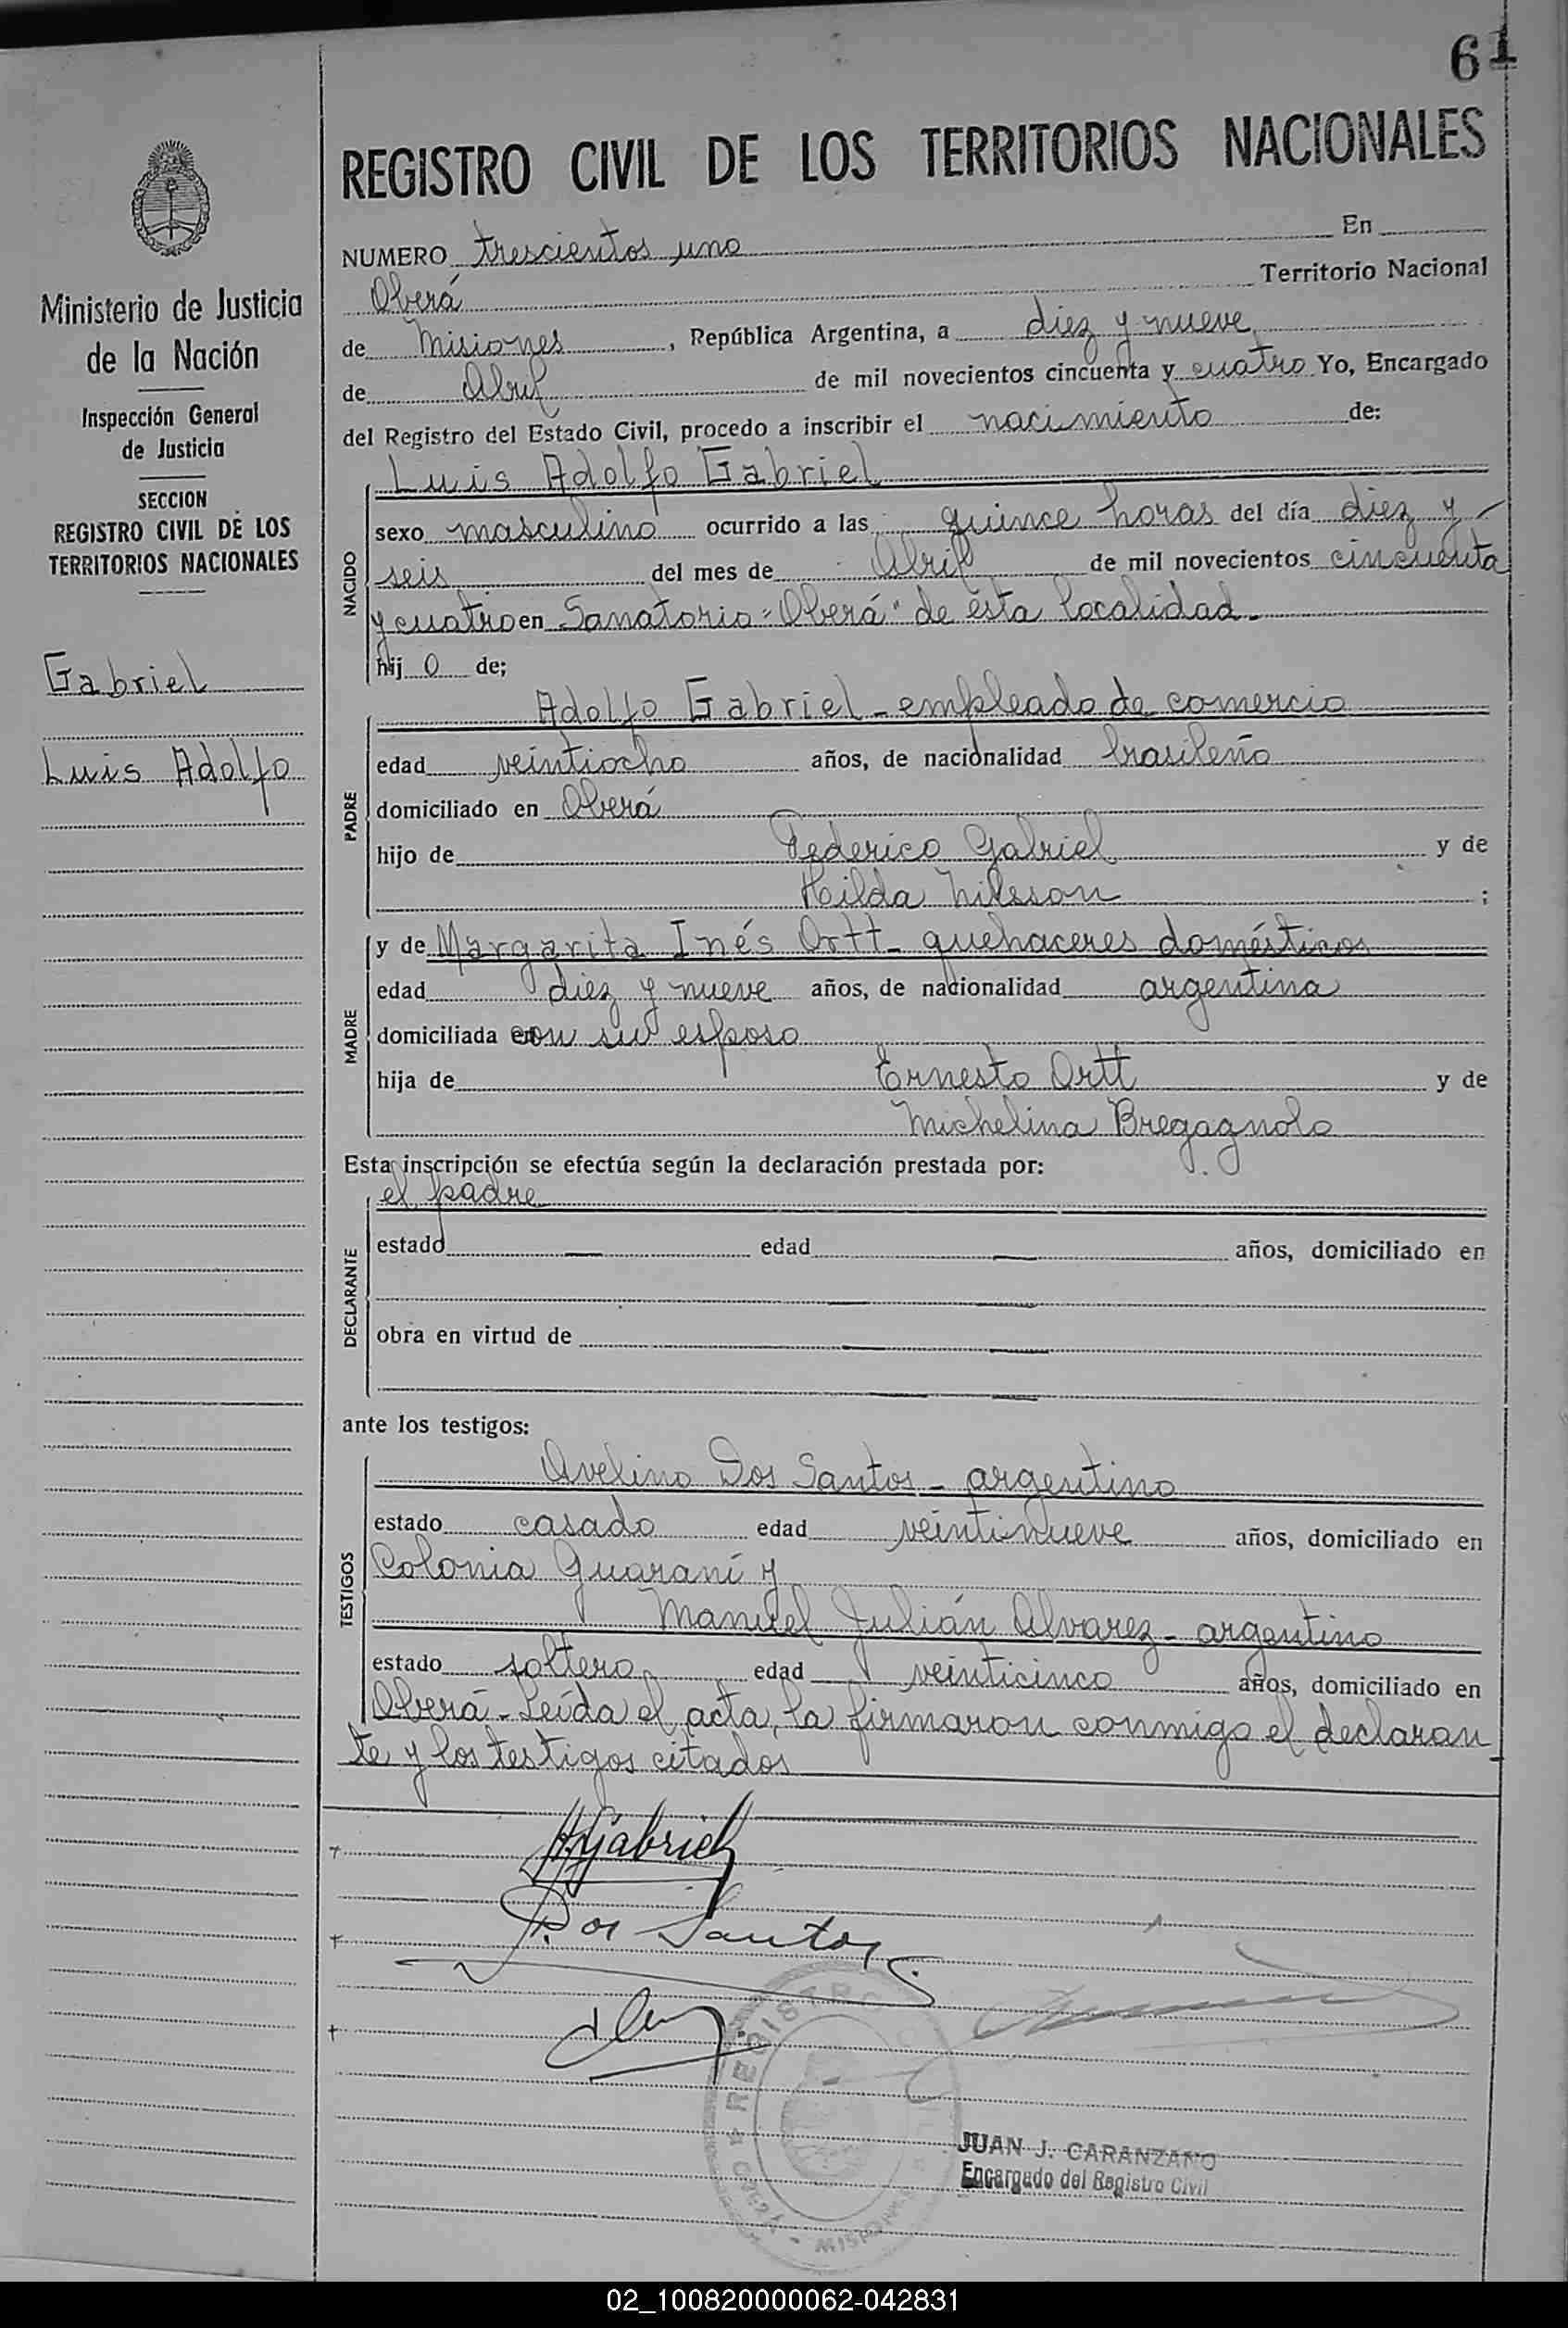 61
REGISTRO CIVIL DE LOS TERRITORIOS NACIONALES
Ministerio de Justicia
de la Nación
Inspección General
de Justicia
SECCION
REGISTRO CIVIL DE LOS
TERRITORIOS NACIONALES
Gabriel
Luis Adolfo
NUMERO trescientos uno En
Oberá Territorio Nacional
de Misiones, República Argentina, a diez y nueve
de Abril de mil novecientos cincuenta y cuatro Yo, Encargado
del Registro del Estado Civil, procedo a inscribir el nacimiento de:
NACIDO
Luis Adolfo Gabriel
sexo masculino ocurrido a las quince horas del día diez y
seis del mes de Abril de mil novecientos cincuenta
y cuatro en Sanatorio "Oberá" de ésta localidad.
hij o de;
PADRE
Adolfo Gabriel - empleado de comercio
edad veintiocho años, de nacionalidad brasileño
domiciliado en Oberá
hijo de Federico Gabriel y de
Hilda Nilsson ;
MADRE
y de Margarita Inés Ortt - quehaceres domésticos
edad diez y nueve años, de nacionalidad argentina
domiciliada con su esposo
hija de Ernesto Ortt y de
Michelina Bregagnolo
Esta inscripción se efectúa según la declaración prestada por:
DECLARANTE
el padre
estado — edad — años, domiciliado en
obra en virtud de
ante los testigos:
TESTIGOS
Avelino Dos Santos - argentino
estado casado edad veintinueve años, domiciliado en
Colonia Guaraní y
Manuel Julián Alvarez - argentino
estado soltero edad veinticinco años, domiciliado en
Oberá - Leída el acta, la firmaron conmigo el declaran
te y los testigos citados
AGabriel
Dos Santos
REGISTRO
JUAN J. CARANZANO
Encargado del Registro Civil
02_100820000062-042831